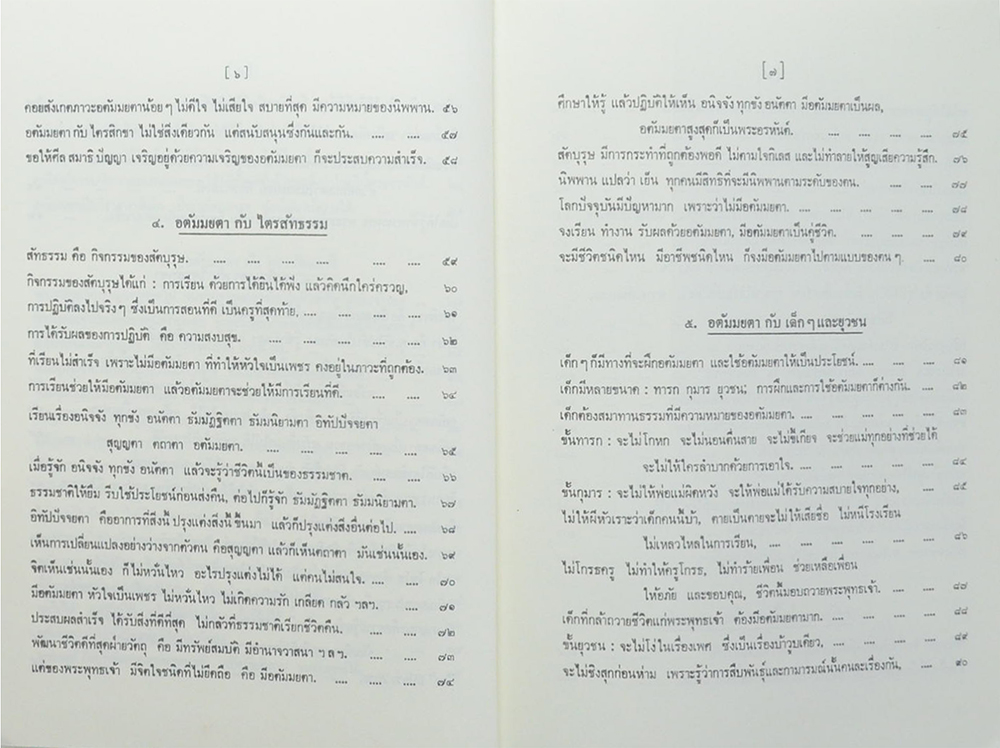 [ ๖ ]
คอยสังเกตภาวะอตัมมยตาน้อย ๆ ไม่ดีใจ ไม่เสียใจ สบายที่สุด มีความหมายของนิพพาน. ๕๖
อตัมมยตา กับ ไตรสิกขา ไม่ใช่สิ่งเดียวกัน แต่สนับสนุนซึ่งกันและกัน. .... .... ๕๗
ขอให้ศีล สมาธิ ปัญญา เจริญอยู่ด้วยความเจริญของอตัมมยตา ก็จะประสบความสำเร็จ. ๕๘
๔. อตัมมยตา กับ ไตรสัทธรรม
สัทธรรม คือ กิจกรรมของสัตบุรุษ. .... .... .... .... .... ๕๙
กิจกรรมของสัตบุรุษได้แก่ : การเรียน ด้วยการได้ยินได้ฟัง แล้วคิดนึกใคร่ครวญ, ๖๐
การปฏิบัติลงไปจริง ๆ ซึ่งเป็นการสอนที่ดี เป็นครูที่สุดท้าย, .... .... .... .... ๖๑
การได้รับผลของการปฏิบัติ คือ ความสงบสุข. .... .... .... .... .... ๖๒
ที่เรียนไม่สำเร็จ เพราะไม่มีอตัมมยตา ที่ทำให้หัวใจเป็นเพชร คงอยู่ในภาวะที่ถูกต้อง. ๖๓
การเรียนช่วยให้มีอตัมมยตา แล้วอตัมมยตาจะช่วยให้มีการเรียนที่ดี. .... .... ๖๔
เรียนเรื่องอนิจจัง ทุกขัง อนัตตา ธัมมัฏฐิตตา ธัมมนิยามตา อิทัปปัจจยตา
สุญญตา ตถาตา อตัมมยตา. .... .... .... .... .... ๖๕
เมื่อรู้จัก อนิจจัง ทุกขัง อนัตตา แล้วจะรู้ว่าชีวิตนี้เป็นของธรรมชาติ. .... .... ๖๖
ธรรมชาติให้ยืม รีบใช้ประโยชน์ก่อนส่งคืน, ต่อไปก็รู้จัก ธัมมัฏฐิตตา ธัมมนิยามตา. ๖๗
อิทัปปัจจยตา คืออาการที่สิ่งนี้ ปรุงแต่งสิ่งนี้ ขึ้นมา แล้วก็ปรุงแต่งสิ่งอื่นต่อไป. .... ๖๘
เห็นการเปลี่ยนแปลงอย่างว่างจากตัวตน คือสุญญตา แล้วก็เห็นตถาตา มันเช่นนั้นเอง. ๖๙
จิตเห็นเช่นนั้นเอง ก็ไม่หวั่นไหว อะไรปรุงแต่งไม่ได้ แต่คนไม่สนใจ. .... .... ๗๐
มีอตัมมยตา หัวใจเป็นเพชร ไม่หวั่นไหว ไม่เกิดความรัก เกลียด กลัว ฯลฯ. .... ๗๑
ประสบผลสำเร็จ ได้รับสิ่งที่ดีที่สุด ไม่กลัวที่ธรรมชาติเรียกชีวิตคืน. .... .... ๗๒
พัฒนาชีวิตดีที่สุดฝ่ายวัตถุ คือ มีทรัพย์สมบัติ มีอำนาจวาสนา ฯลฯ. .... .... ๗๓
แต่ของพระพุทธเจ้า มีจิตใจชนิดที่ไม่ยึดถือ คือ มีอตัมมยตา. .... .... .... ๗๔
[ ๗ ]
ศึกษาให้รู้ แล้วปฏิบัติให้เห็น อนิจจัง ทุกขัง อนัตตา มีอตัมมยตาเป็นผล,
อตัมมยตาสูงสุดก็เป็นพระอรหันต์. .... .... .... .... ๗๕
สัตบุรุษ มีการกระทำที่ถูกต้องพอดี ไม่ตามใจกิเลส และไม่ทำลายให้สูญเสียความรู้สึก. ๗๖
นิพพาน แปลว่า เย็น ทุกคนมีสิทธิที่จะมีนิพพานตามระดับของตน. .... .... ๗๗
โลกปัจจุบันมีปัญหามาก เพราะว่าไม่มีอตัมมยตา. .... .... .... .... ๗๘
จงเรียน ทำงาน รับผลด้วยอตัมมยตา, มีอตัมมยตาเป็นคู่ชีวิต. .... .... .... ๗๙
จะมีชีวิตชนิดไหน มีอาชีพชนิดไหน ก็จงมีอตัมมยตาไปตามแบบของตน ๆ. .... ๘๐
๕. อตัมมยตา กับ เด็ก ๆ และยุวชน
เด็ก ๆ ก็มีทางที่จะฝึกอตัมมยตา และใช้อตัมมยตาให้เป็นประโยชน์. .... .... .... ๘๑
เด็กมีหลายขนาด : ทารก กุมาร ยุวชน; การฝึกและการใช้อตัมมยตาก็ต่างกัน. .... ๘๒
เด็กต้องสมาทานธรรมที่มีความหมายของอตัมมยตา. .... .... .... .... ๘๓
ขั้นทารก : จะไม่โกหก จะไม่นอนตื่นสาย จะไม่ขี้เกียจ จะช่วยแม่ทุกอย่างที่ช่วยได้
จะไม่ให้ใครลำบากด้วยการเอาใจ. .... .... .... .... ๘๔
ขั้นกุมาร : จะไม่ให้พ่อแม่ผิดหวัง จะให้พ่อแม่ได้รับความสบายใจทุกอย่าง, .... ๘๕
ไม่ให้ผีหัวเราะว่าเด็กคนนี้บ้า, ตายเป็นตายจะไม่ให้เสียชื่อ ไม่หนีโรงเรียน
ไม่เหลวไหลในการเรียน, .... .... .... .... .... ๘๖
ไม่โกรธครู ไม่ทำให้ครูโกรธ, ไม่ทำร้ายเพื่อน ช่วยเหลือเพื่อน
ให้อภัย และขอบคุณ, ชีวิตนี้มอบถวายพระพุทธเจ้า. .... .... ๘๗
เด็กที่กล้าถวายชีวิตแก่พระพุทธเจ้า ต้องมีอตัมมยตามาก. .... .... .... ๘๘
ขั้นยุวชน : จะไม่โง่ในเรื่องเพศ ซึ่งเป็นเรื่องบ้าวูบเดียว, .... .... .... .... ๘๙
จะไม่ชิงสุกก่อนห่าม เพราะรู้ว่าการสืบพันธุ์และกามารมณ์นั้นคนละเรื่องกัน, .... ๙๐